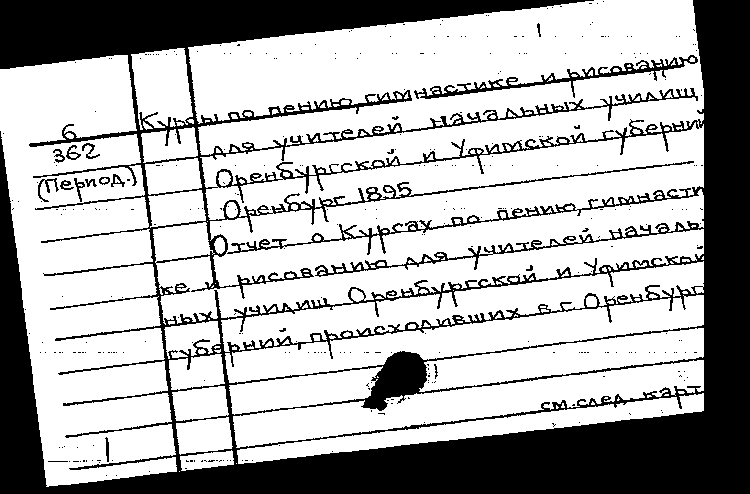 6
362
(Период.)
Курсы по пению, гимнастике и рисованию
для учителей начальных училищ
Оренбургской и Уфимской губерний
Оренбург 1895
Отчет о Курсах по пению, гимнасти
ке и рисованию для учителей началь
ных училищ Оренбургской и Уфимской
губерний, происходивших в г. Оренбург
см. след. карт